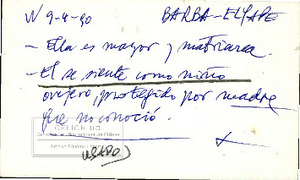 V 9-4-90 BARBA-ELYAPE
- Ella es mayor y matriarca
- El se siente como niño
ovejero, protegido por madre
que no conoció.
CELICH UC
(USADO)